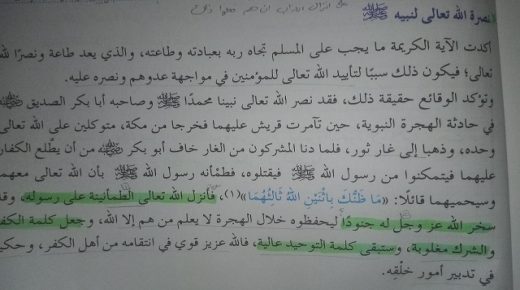 نصرة الله تعالى لنبيه ﷺ
أكدت الآية الكريمة ما يجب على المسلم تجاه ربه بعبادته وطاعته، والذي يعد طاعة ونصرًا لله
تعالى؛ فيكون ذلك سببًا لتأييد الله تعالى للمؤمنين في مواجهة عدوهم ونصره عليه.
وتؤكد الوقائع حقيقة ذلك، فقد نصر الله تعالى نبينا محمدًا ﷺ وصاحبه أبا بكر الصديق
في حادثة الهجرة النبوية، حين تآمرت قريش عليهما فخرجا من مكة، متوكلين على الله تعالى
وحده، وذهبا إلى غار ثور، فلما دنا المشركون من الغار خاف أبو بكر من أن يطلع الكفار
عليهما فيتمكنوا من رسول الله ﷺ فيقتلوه، فطمأنه رسول الله ﷺ بأن الله تعالى معهما
وسيحميهما قائلًا: «مَا ظَنُّكَ بِاثْنَيْنِ اللهُ ثَالِثُهُمَا»(١)، فأنزل الله تعالى الطمأنينة على رسوله، وقد
سخر الله عز وجل له جنودًا ليحفظوه خلال الهجرة لا يعلم من هم إلا الله، وجعل كلمة الكفر
والشرك مغلوبة، وستبقى كلمة التوحيد عالية، فالله عزيز قوي في انتقامه من أهل الكفر، وحكيم
في تدبير أمور خلقه.